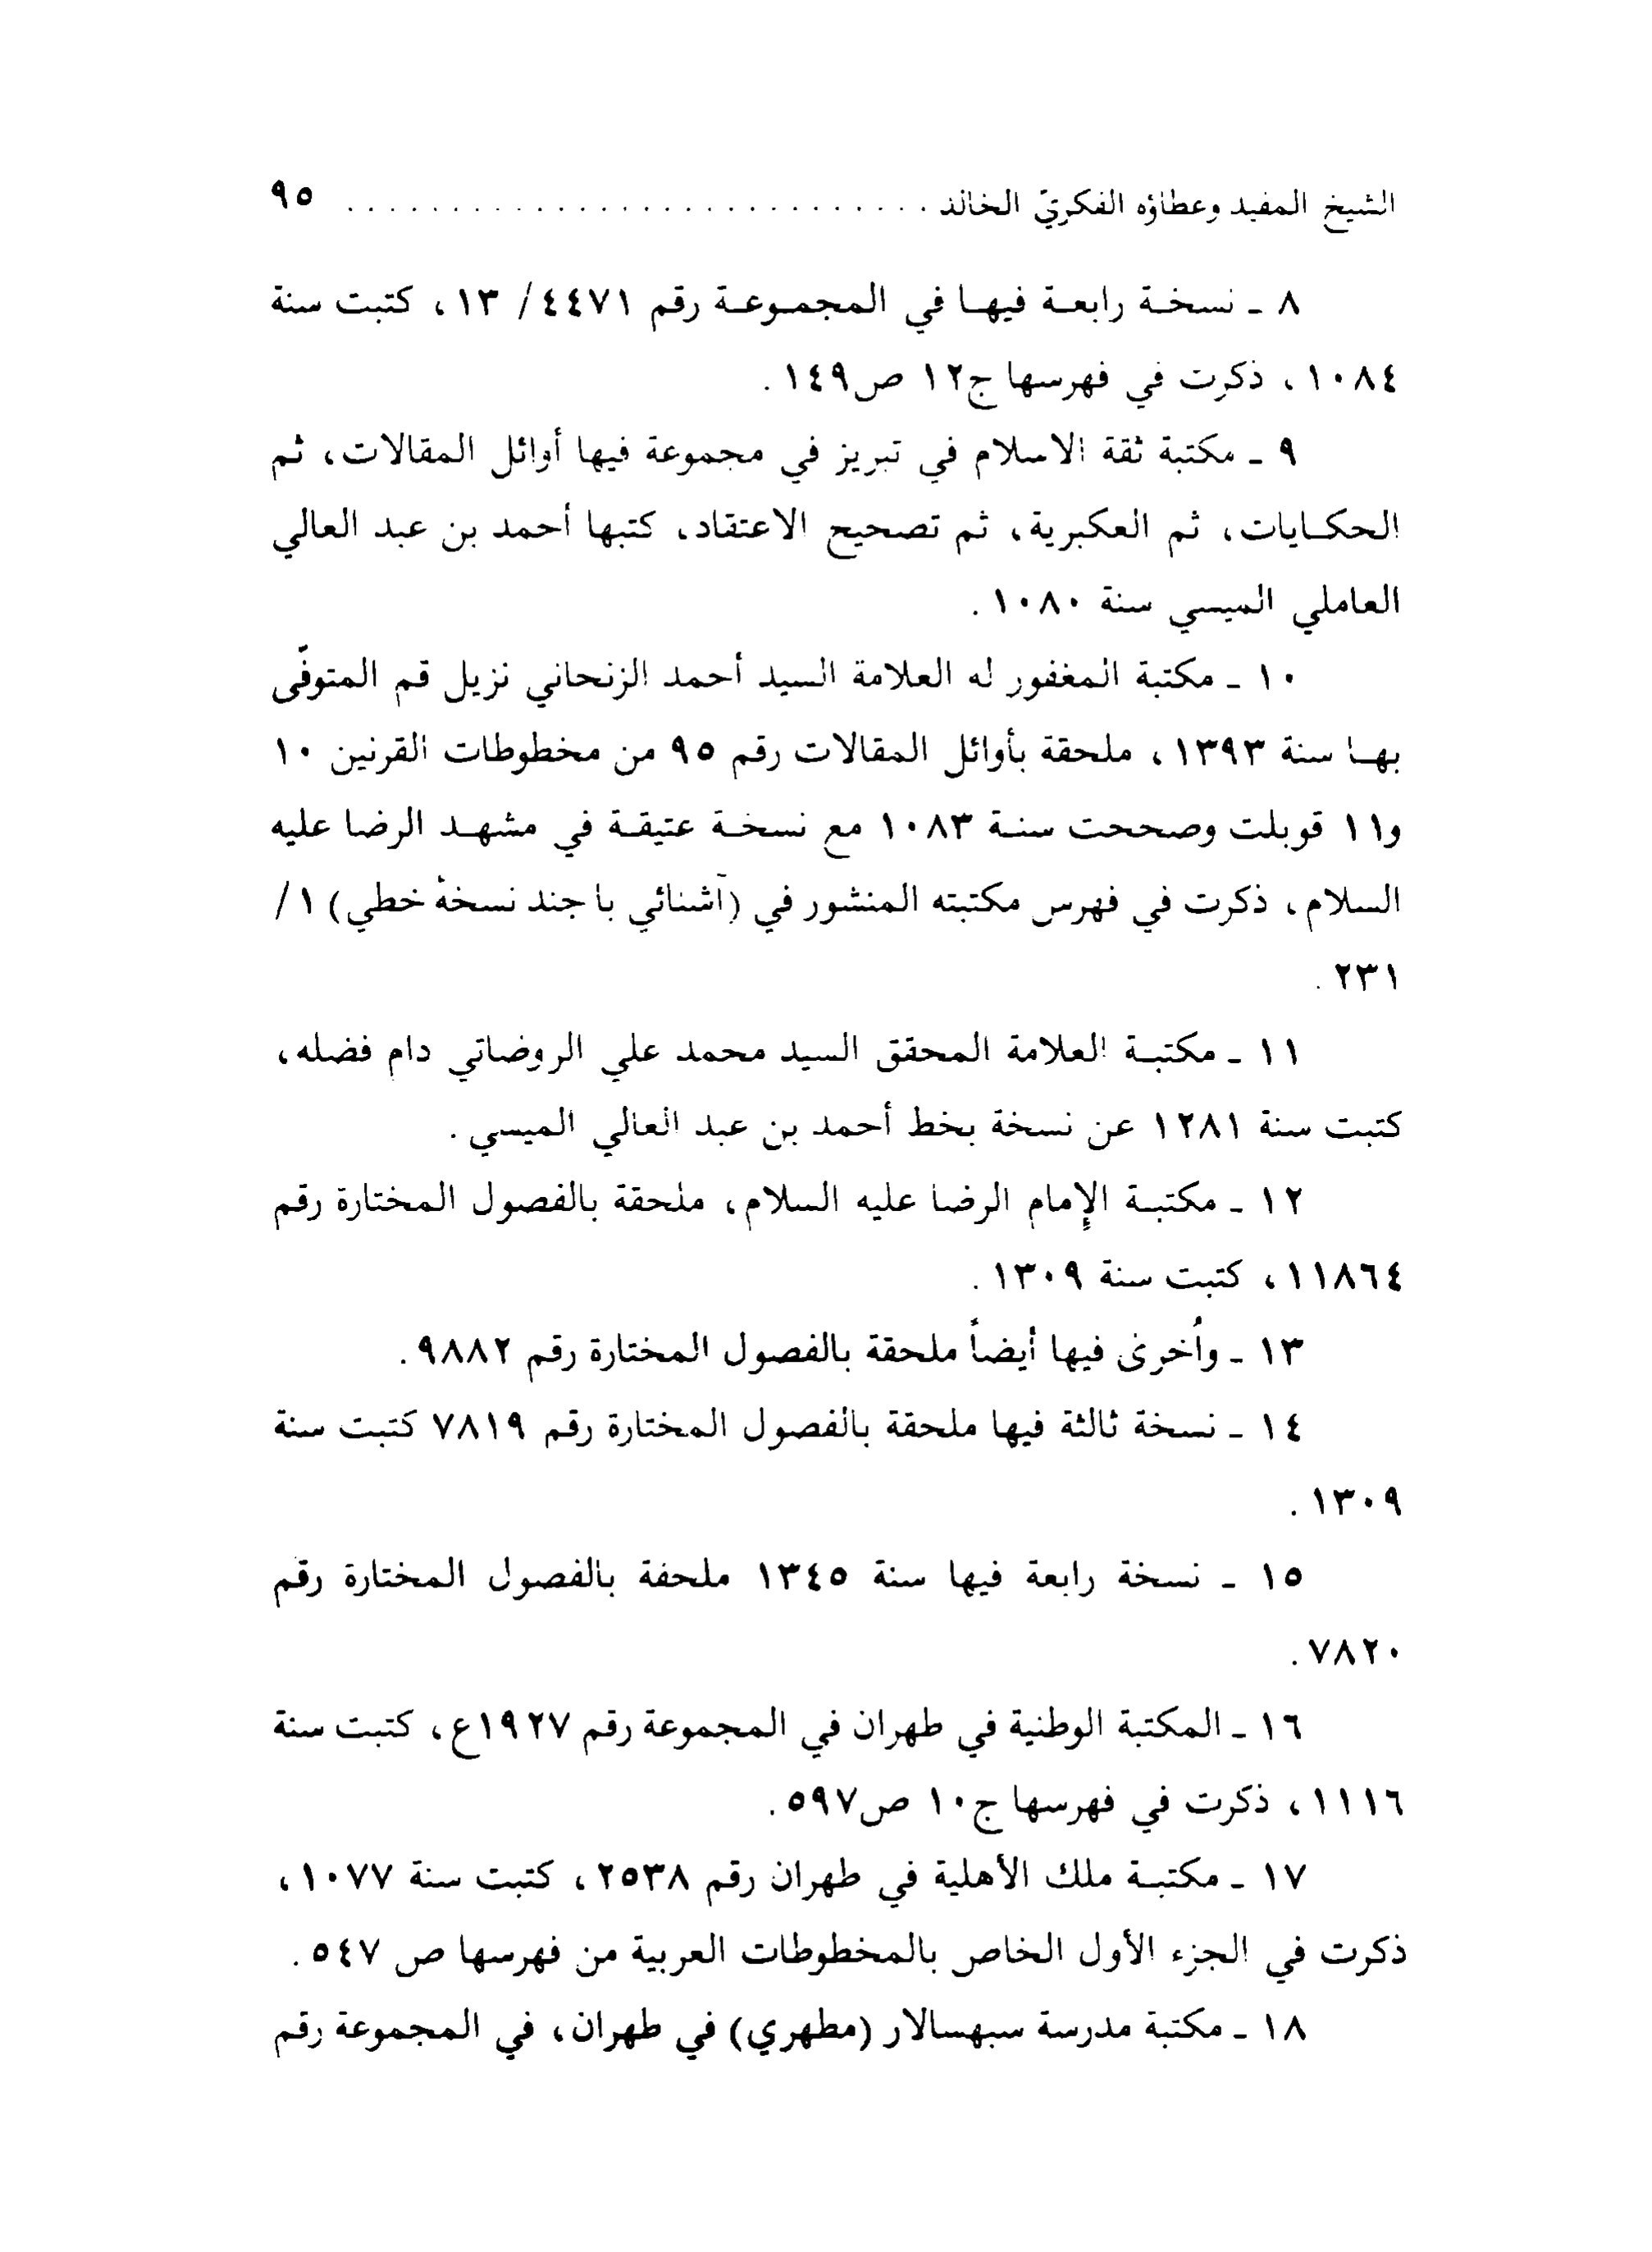 الشيخ المفيد وعطاؤه الفكريّ الخالد . . . . . . . . . . . . . . . . . . . . . . . . . . . . ٩٥
٨ ـ نسخة رابعة فيها في المجموعة رقم ٤٤٧١/ ١٣، كتبت سنة
١٠٨٤، ذكرت في فهرسها ج١٢ ص١٤٩.
٩ ـ مكتبة ثقة الاسلام في تبريز في مجموعة فيها أوائل المقالات، ثم
الحكايات، ثم العكبرية، ثم تصحيح الاعتقاد، كتبها أحمد بن عبد العالي
العاملي الميسي سنة ١٠٨٠.
١٠ ـ مكتبة المغفور له العلامة السيد أحمد الزنحاني نزيل قم المتوفّى
بها سنة ١٣٩٣، ملحقة بأوائل المقالات رقم ٩٥ من مخطوطات القرنين ١٠
و١١ قوبلت وصححت سنة ١٠٨٣ مع نسخة عتيقة في مشهد الرضا عليه
السلام، ذكرت في فهرس مكتبته المنشور في (آشنائي با جند نسخهٔ خطي) ١/
٢٣١.
١١ ـ مكتبة العلامة المحقق السيد محمد علي الروضاتي دام فضله،
كتبت سنة ١٢٨١ عن نسخة بخط أحمد بن عبد العالي الميسي.
١٢ ـ مكتبة الإمام الرضا عليه السلام، ملحقة بالفصول المختارة رقم
١١٨٦٤، كتبت سنة ١٣٠٩.
١٣ ـ واُخرى فيها أيضاً ملحقة بالفصول المختارة رقم ٩٨٨٢.
١٤ ـ نسخة ثالثة فيها ملحقة بالفصول المختارة رقم ٧٨١٩ كتبت سنة
١٣٠٩.
١٥ ـ نسخة رابعة فيها سنة ١٣٤٥ ملحقة بالفصول المختارة رقم
٧٨٢٠.
١٦ ـ المكتبة الوطنية في طهران في المجموعة رقم ١٩٢٧ع، كتبت سنة
١١١٦، ذكرت في فهرسها ج١٠ ص٥٩٧.
١٧ ـ مكتبة ملك الأهلية في طهران رقم ٢٥٣٨، كتبت سنة ١٠٧٧،
ذكرت في الجزء الأول الخاص بالمخطوطات العربية من فهرسها ص ٥٤٧.
١٨ ـ مكتبة مدرسة سبهسالار (مطهري) في طهران، في المجموعة رقم